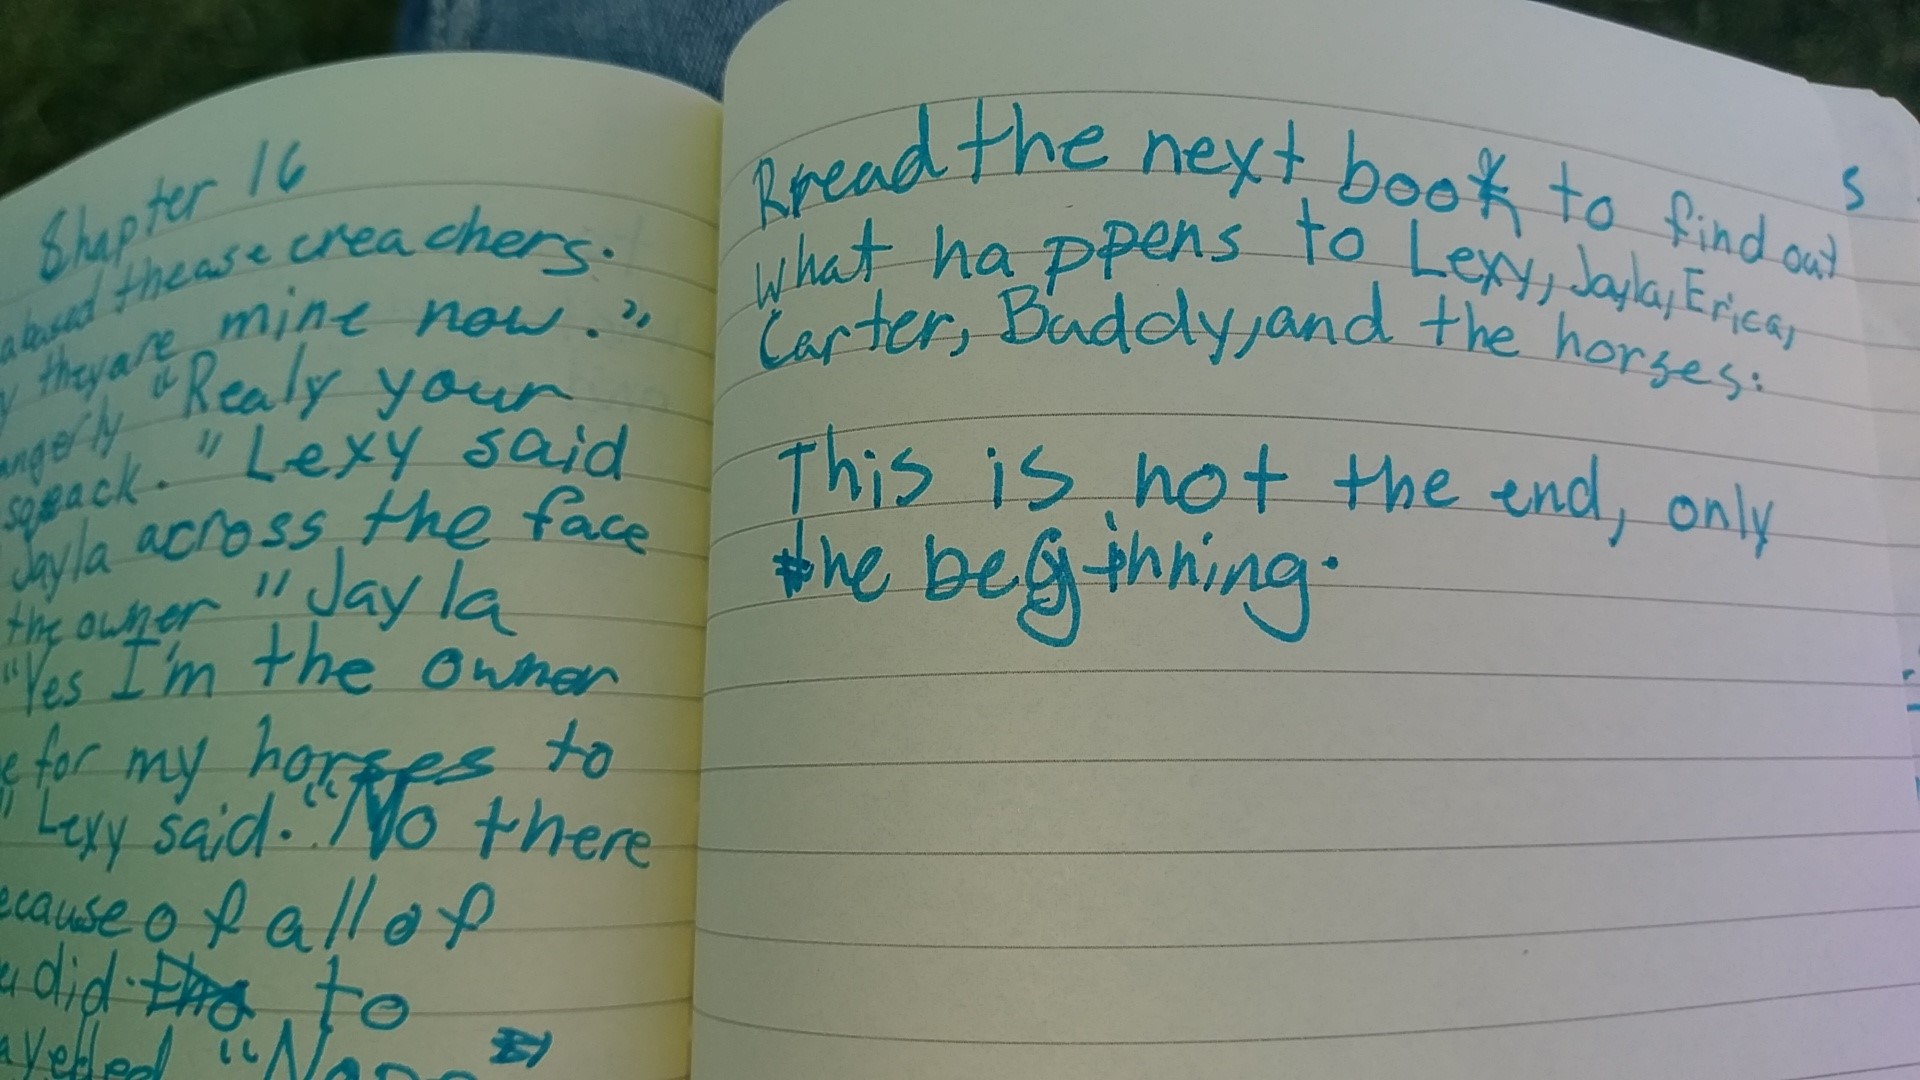 Shapter 16
abused thease creachers.
they are mine now."
angerly "Realy your
sqeack." Lexy said
Jayla across the face
the owner" Jayla
"Yes I'm the owner
e for my horses to
" Lexy said. "No there
ecause of all of
u did. to
ayelled "Nope
Rread the next book to find out
what happens to Lexy, Jayla, Erica,
Carter, Buddy, and the horses.
This is not the end, only
the beginning.
s